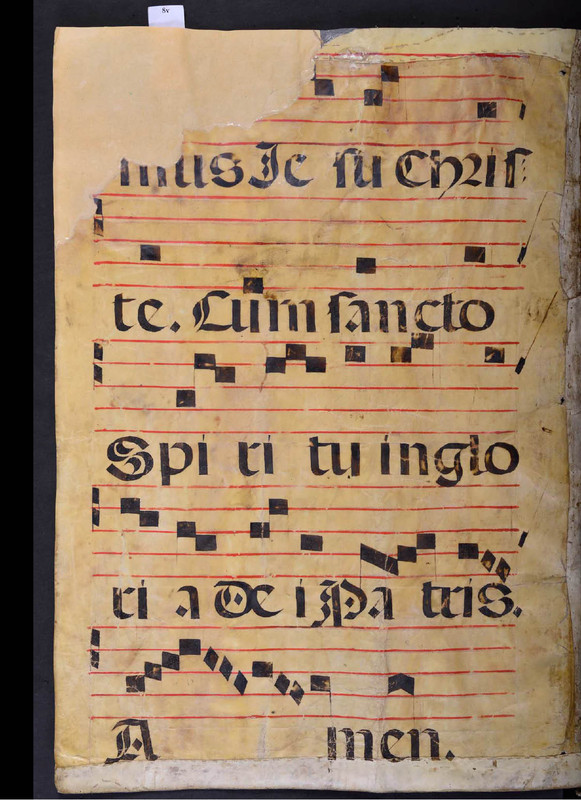 8v
mus Je su Chris
te. Cum sancto
Spi ri tu in glo
ri a De i Pa tris.
A men.